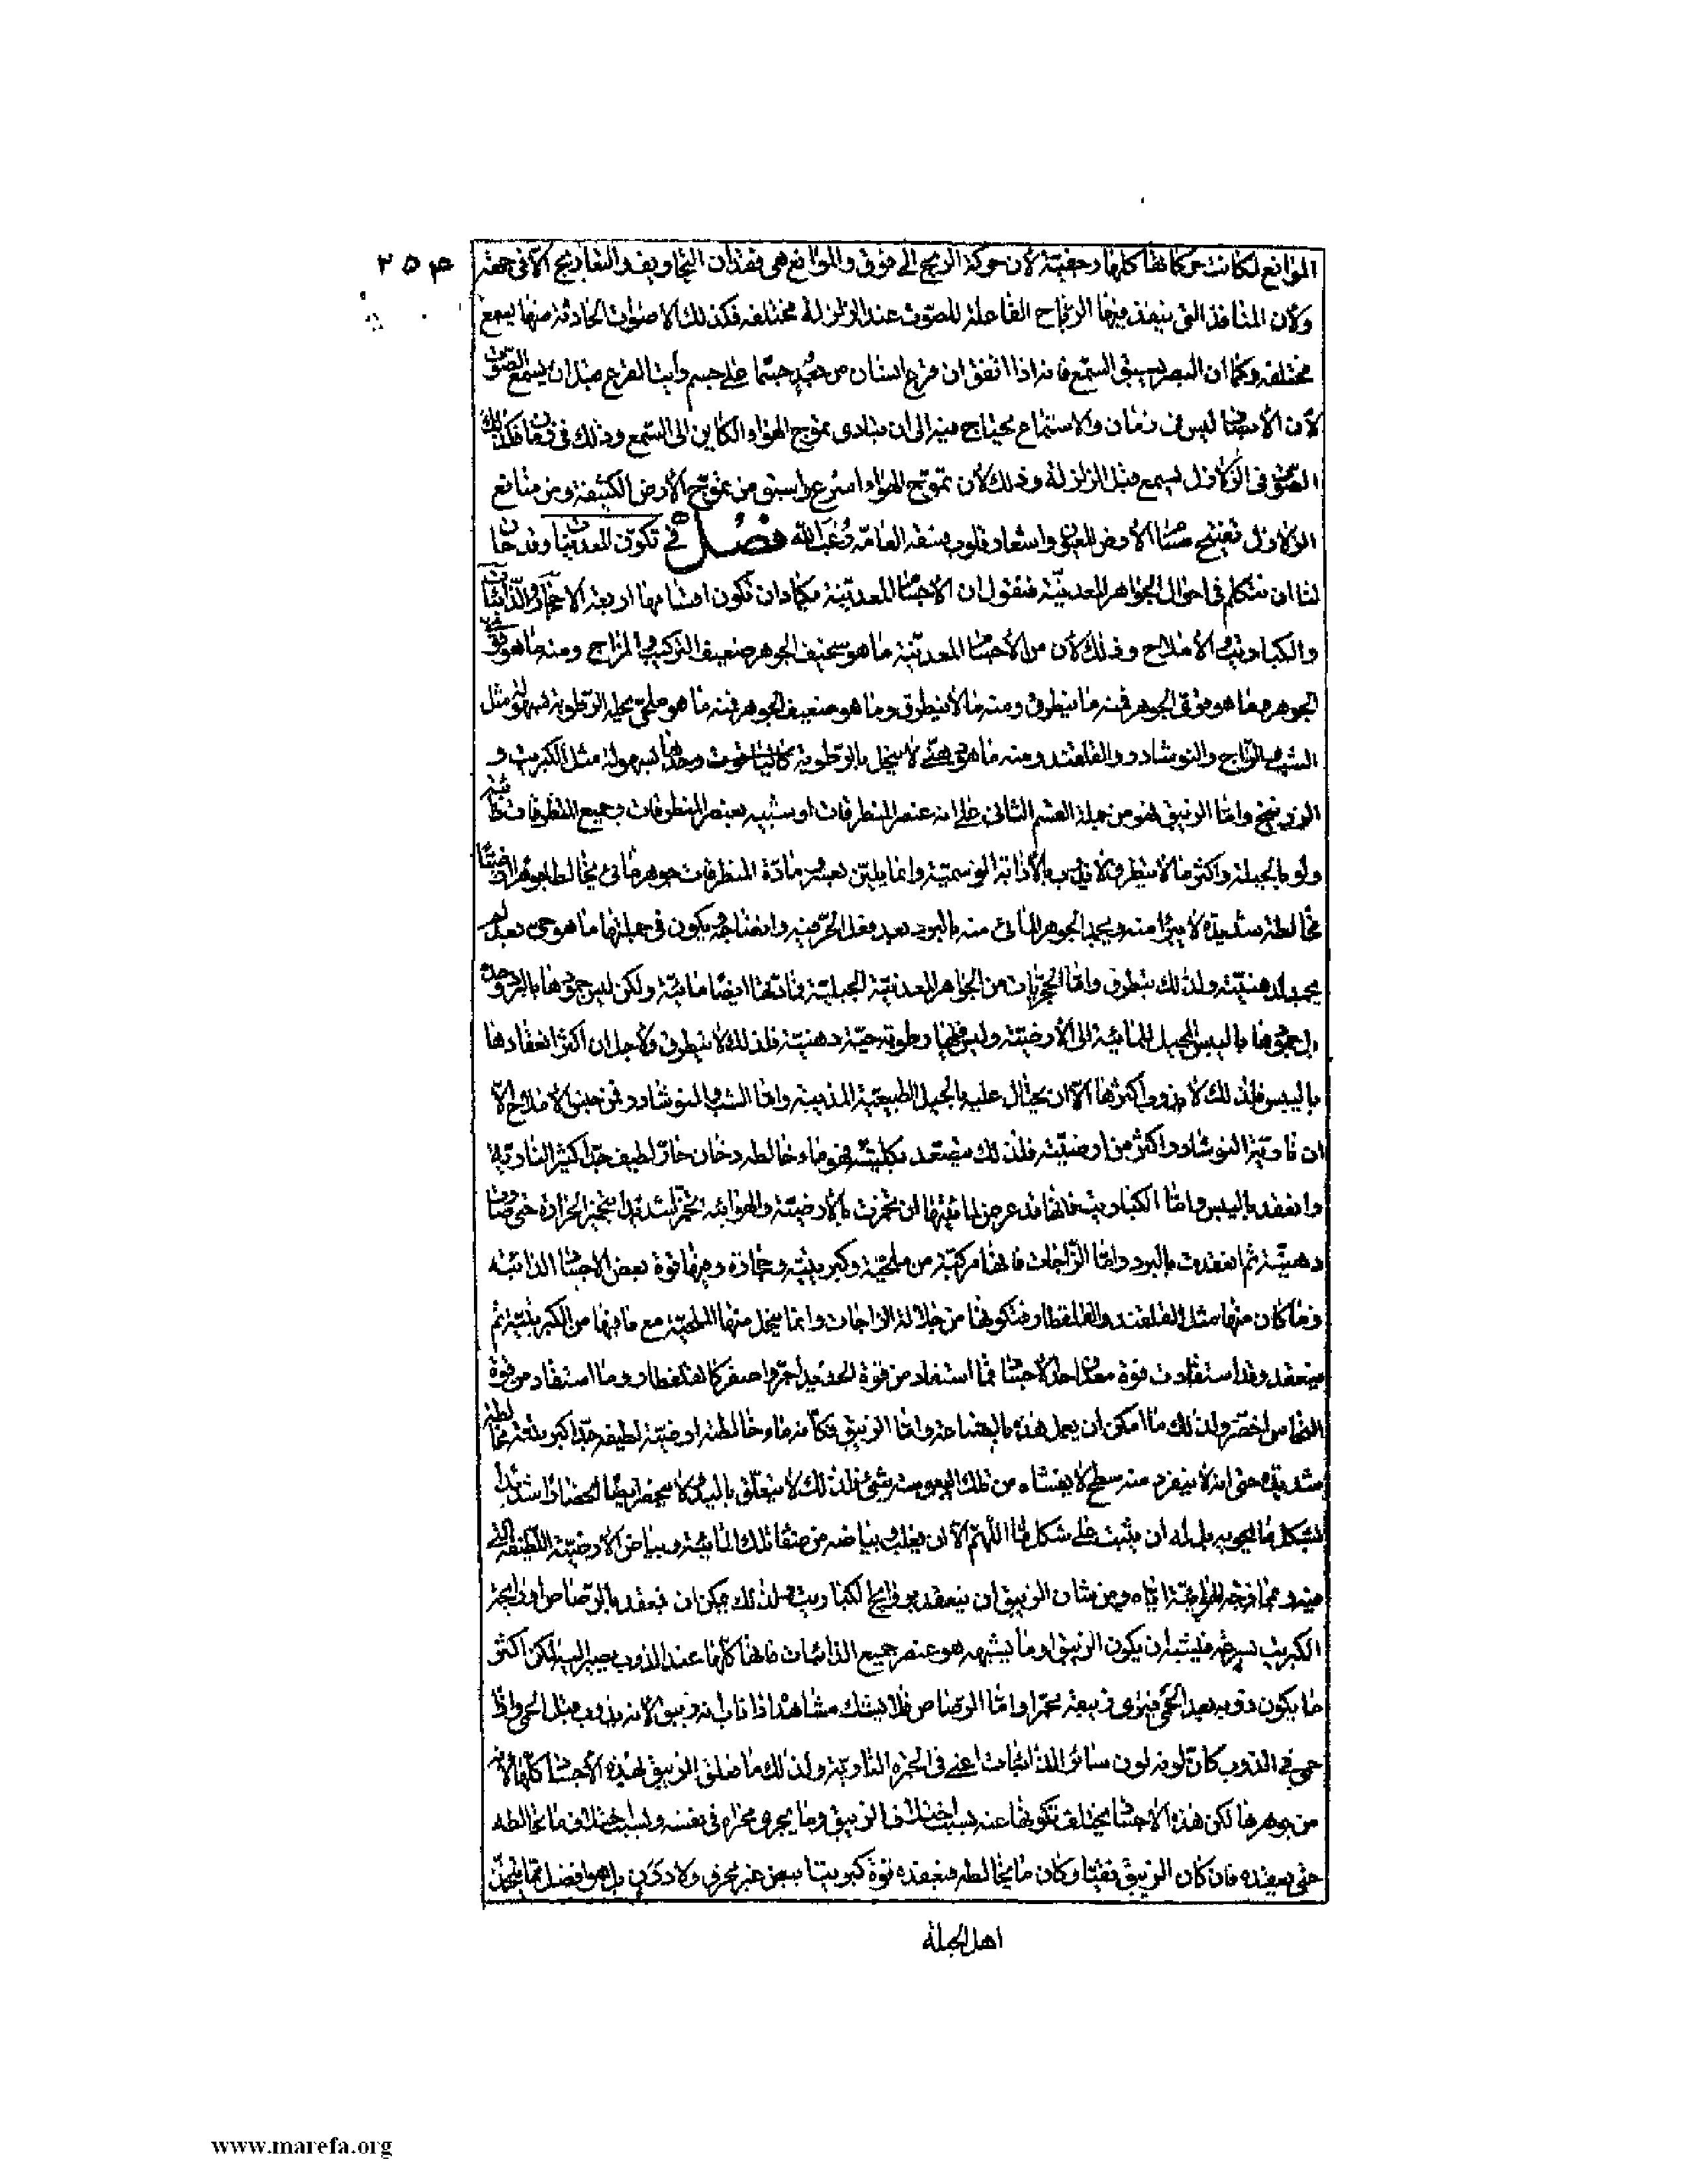 الموانع لكانت حركاتها كلها رجفية لأن حركة الريح إلى فوق والموانع هي فقدان التجاويف والتعاريج الآتى جهة
٢٥٣
ولأن المنافذ التي ينفذ فيها الرياح الفاعلة للصوت عند الزلزلة مختلفة فكذلك الاصوات الحادثة منها يسمع
مختلفة وكما ان البصر يسبق السمع فانه اذا اتفق ان قرع انسان من بعد جسما على جسم رأيت القرع قبل ان يسمع الصوت
لأن الأبصار ليس فى زمان والاستماع يحتاج فيه الى ان يتادى تموج الهواء الكاين الى السمع وذلك فى زمان فكذلك
الصوت فى الزلازل يسمع قبل الزلزلة وذلك لأن تموج الهواء اسرع واسبق من تموج الأرض الكثيفة ومن منافع
الزلازل تفتيح مسام الأرض للعيون واشعار قلوب فسقة العامة رعب الله فصل في تكون المعدنيات وقد حان
لنا ان نتكلم فى احوال الجواهر المعدنية فنقول ان الأجسام المعدنية تكاد ان تكون اقسامها اربعة الاحجار والذائبات
والكباريت والأملاح وذلك لأن من الأجسام المعدنية ما هو سخيف الجوهر ضعيف التركيب والمزاج ومنه ما هو قوى
الجوهر فما هو قوى الجوهر فمنه ما ينطرق ومنه ما لا ينطرق وما هو ضعيف الجوهر فمنه ما هو ملحى يحله الرطوبة بسهولة مثل
الشب والزاج والنوشادر والقلقند ومنه ما هو دهنى لا ينحل بالرطوبة وحدها بسهولة مثل الكبريت و
الزرنيخ واما الزيبق فهو من جملة القسم الثانى على انه عنصر المنطرقات او شبيه بعنصر المنطرقات وجميع المنطرقات ذائبة
ولو بالحيلة واكثر ما لا ينطرق لا يذوب بالأذابة الرسمية وانما يلين بعسر ومادة المنطرقات جوهر مائى يخالط جوهرا ارضيا
مخالطة شديدة لا يبرأ منه ويجمد الجوهر المائى منه بالبرد بعد فعل الحر فيه وانضاجه ويكون فى جملتها ما هو حى بعد لم
يجمد لدهنيته ولذلك ينطرق واما الحجريات من الجواهر المعدنية الجبلية فمادتها ايضا مائية ولكن ليس جمودها بالبرد وحده
بل جمودها باليبس المحيل للمائية الى الأرضية وليس فيها رطوبة حية دهنية فلذلك لا ينطرق ولأجل ان اكثر انعقادها
باليبس فلذلك لا يذوب اكثرها الا ان يحتال عليه بالحيل الطبيعية المذيبة واما الشب والنوشادر فمن جنس الأملاح الا
ان نارية النوشادر اكثر من ارضيته فلذلك يتصعد بكليته فهو ماء خالطه دخان حار لطيف جدا كثير النارية
وانعقد باليبس واما الكباريت فانها قد عرض لمائيتها ان تخمرت بالأرضية والهوائية تخمرا شديدا بتخمير الحرارة حتى صارت
دهنية ثم انعقدت بالبرد واما الزاجات فانها مركبة من ملحية وكبريتية وحجارة وفيها قوة بعض الاجسام الذائبة
وما كان منها مثل القلقند والقلقطار فتكونها من جلالة الزاجات وانما ينحل منها الملحية مع ما فيها من الكبريتية ثم
ينعقد وقد استفادت قوة معدن احد الأجسام فما استفاد من قوة الحديد احمر واصفر كالقلقطار وما استفاد من قوة
النحاس اخضر ولذلك ما امكن ان يعمل هذه بالصناعة واما الزيبق فكأنه ماء خالطته ارضية لطيفة جدا كبريتية مخالطة
شديدة حتى انه لا ينفرد منه سطح لا يغشاه من تلك اليبوسة شيء فلذلك لا يتعلق باليد ولا ينحصر ايضا انحصارا شديدا
بشكل ما يحويه بل له ان يثبت على شكل ما اللهم الا ان يغلب وبياضه من صفا تلك المائية وبياض الأرضية اللطيفة التى
فيه وممازجة الهوائية اياه ومن شان الزيبق ان ينعقد بروايح الكباريت فلذلك يمكن ان ينعقد بالرصاص او برايحة
الكبريت بسرعة فيشبه ان يكون الزيبق او ما يشبهه هو عنصر جميع الذائبات فانها كلها عند الذوب يصير اليه لكن اكثر
ما يكون ذوبه بعد الحمى فيرى زيبقه محمرا واما الرصاص فلا يشك مشاهده اذا ذاب انه زيبق لانه يذوب قبل الحمى واذا
حمى فى الذوب كان لونه لون سائر الذائبات اعنى فى الحمرة النارية ولذلك ما تعلق الزيبق بهذه الأجسام كلها لأنه
من جوهرها لكن هذه الاجسام يختلف تكونها عنه بسبب اختلاف الزيبق وما يجرى مجراه فى نفسه وبسبب اختلاف ما يخالطه
حتى يعقده فان كان الزيبق نقيا وكان ما يخالطه فيعقده قوة كبريت ابيض غير محرق ولا درن بل هو افضل مما يتخذه
اهل الحيلة
www.marefa.org